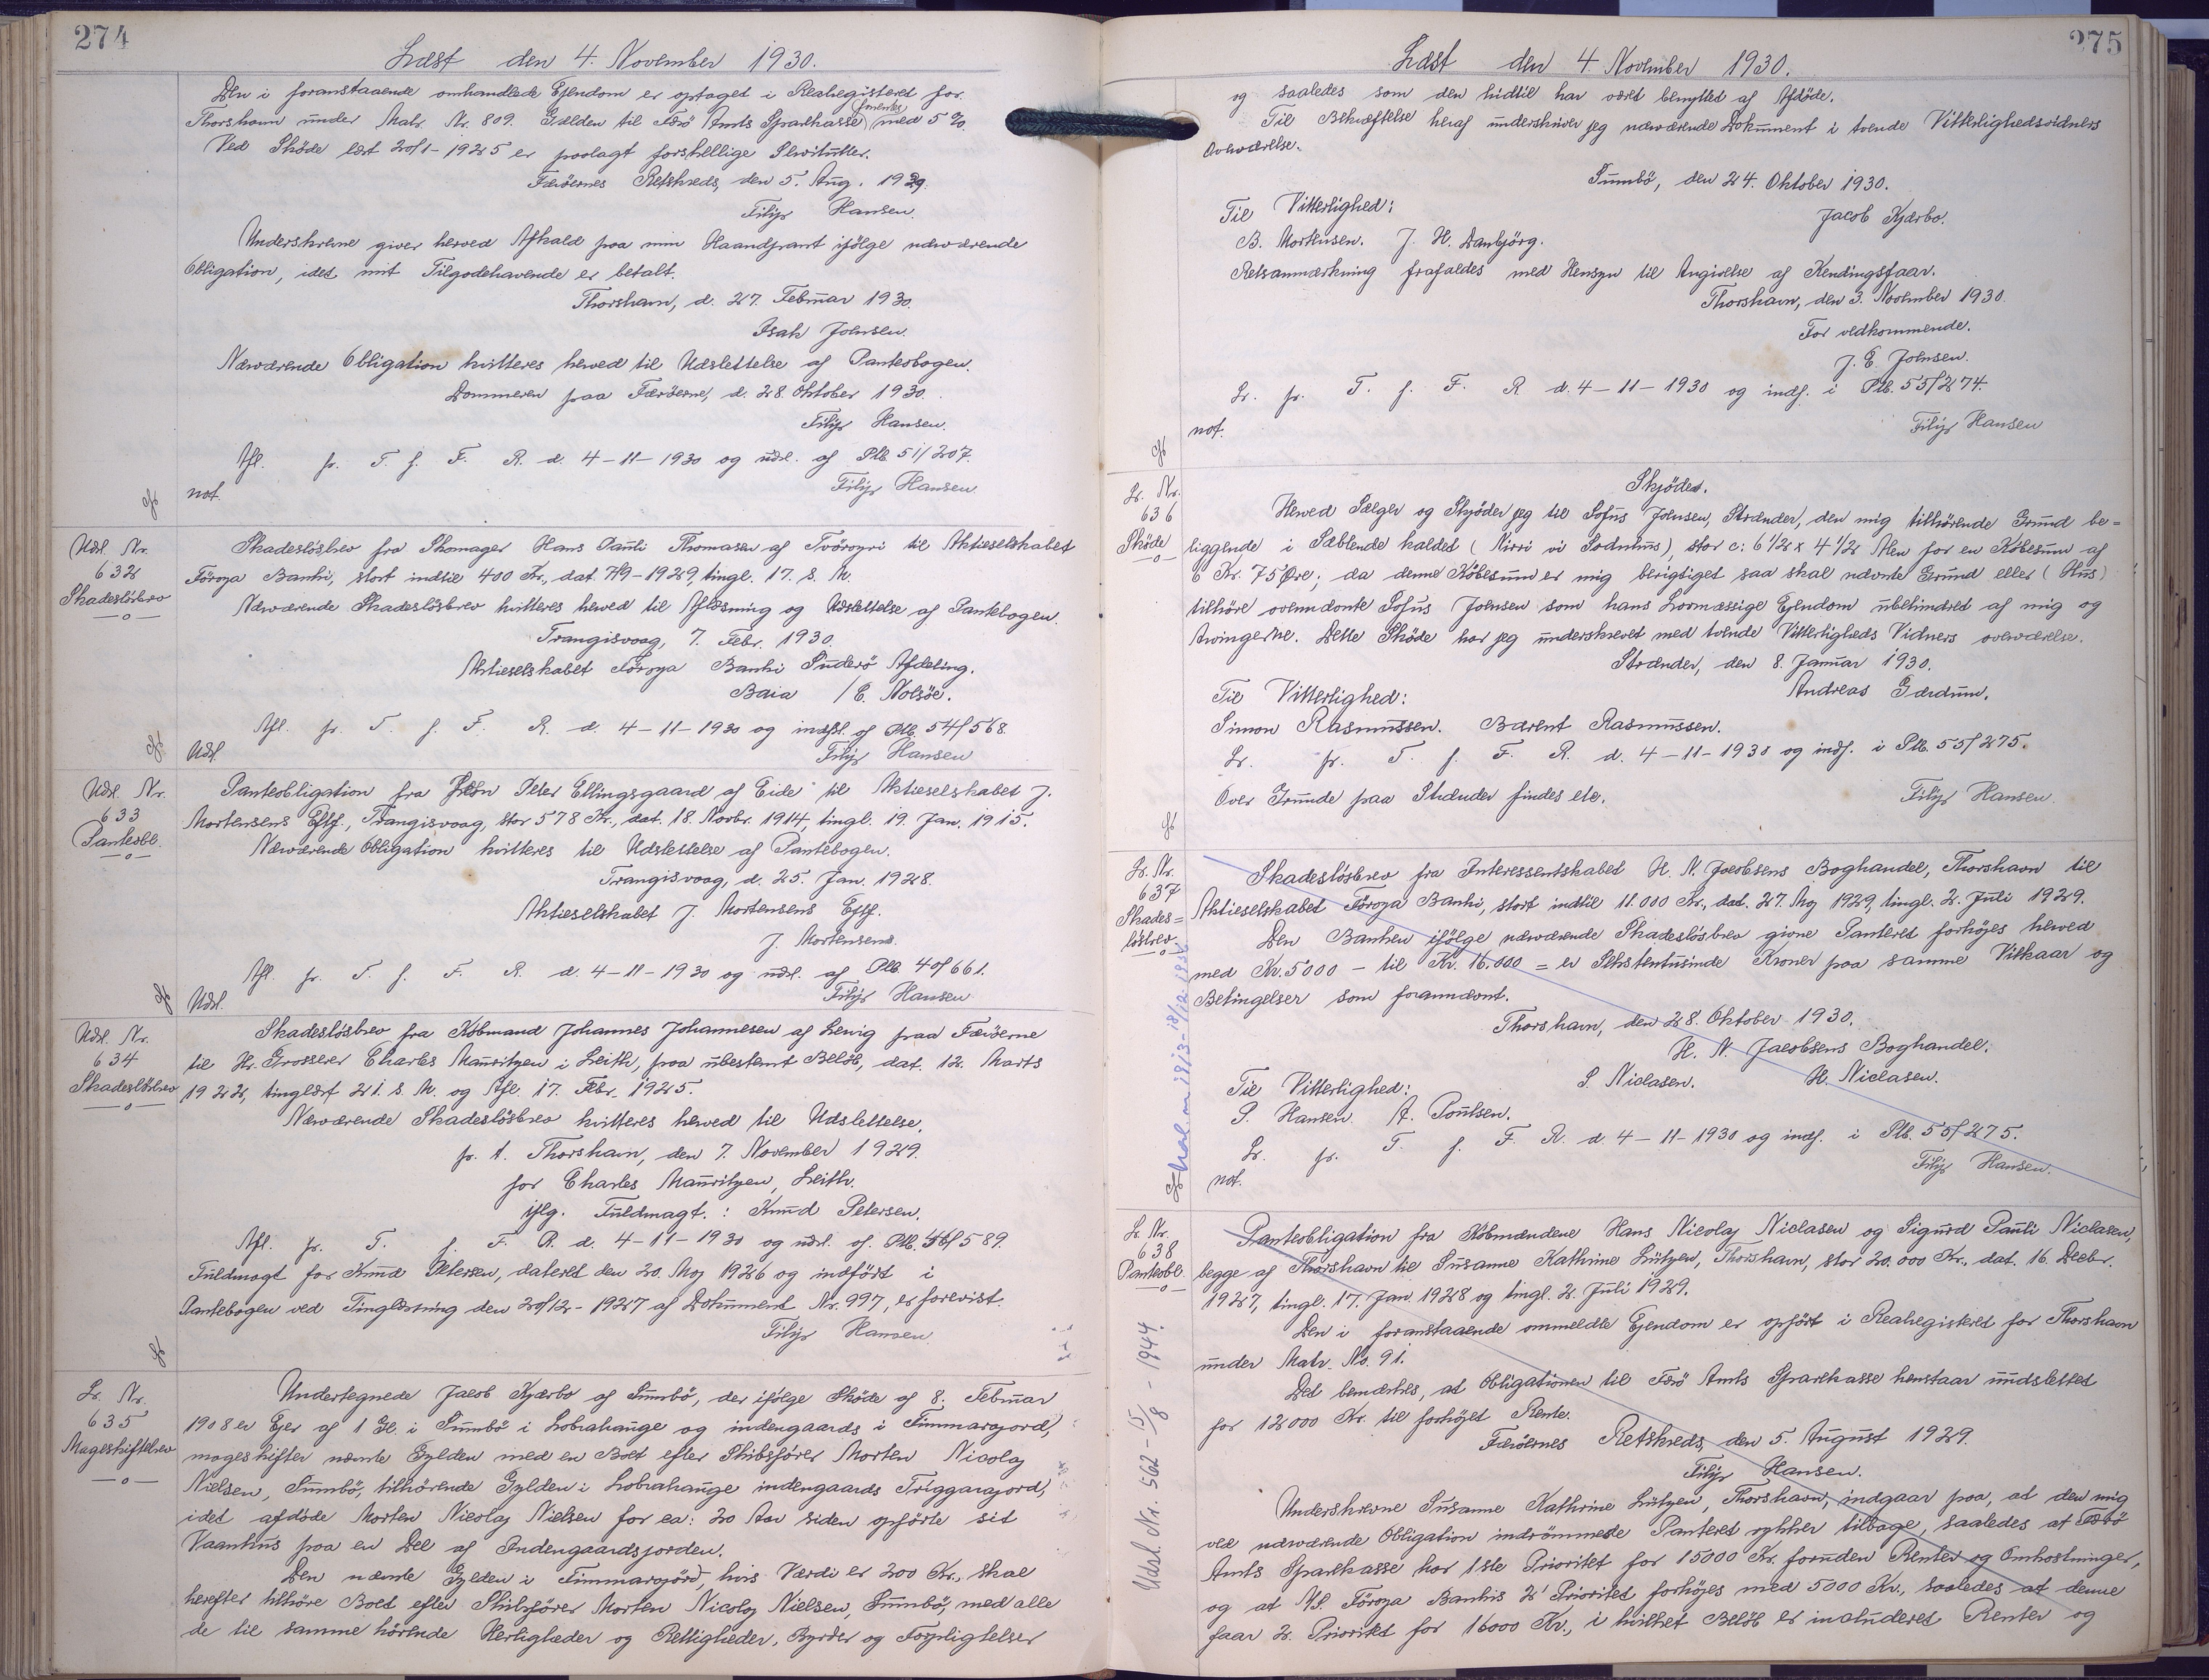 274
Læst den 4. November 1930.
Den i foranstaaende omhandlede Ejendom er optaget i Realregisteret for
Thorshavn under Matr. Nr. 809. Gælden til Færø Amts Sparekasse forrentes med 5 %.
Ved Skøde læst 20/1-1925 er paalagt forskellige Servitutter.
Færøernes Retskreds, den 5. Aug. 1929.
Filip Hansen.
Underskrevne giver herved Afkald paa min Haandpant ifølge nærværende
Obligation, idet mit Tilgodehavende er betalt.
Thorshavn, d. 27. Februar 1930.
Isak Johnsen.
Nærværende Obligation kvitteres herved til Udslettelse af Pantebogen.
Dommeren paa Færøerne, d. 28. Oktober 1930.
Filip Hansen.
Afl. pr. T. f. F. R. d. 4-11-1930 og udsl. af Ptb. 51/207.
not. Filip Hansen
Udsl. Nr.
632
Skadesløsbrev
Skadesløsbrev fra Skomager Hans Pauli Thomasen af Tvöroyri til Aktieselskabet
Föroya Banki, stort indtil 400 Kr., dat. 7/9-1929, tingl. 17. s. M.
Nærværende Skadesløsbrev kvitteres herved til Aflæsning og Udslettelse af Pantebogen.
Trangisvaag, 7. Febr. 1930.
Aktieselskabet Föroya Banki Suderø Afdeling.
Baia / E. Nolsøe.
Afl. pr. T. f. F. R. d. 4-11-1930 og indfl. af Ptb. 54/568.
Udsl. Filip Hansen
Udsl. Nr.
633
Panteobl.
Panteobligation fra John Peter Ellingsgaard af Eide til Aktieselskabet J.
Mortensens Eftf., Trangisvaag, stor 578 Kr., dat. 18. Novbr. 1914, tingl. 19. Jan. 1915.
Nærværende Obligation kvitteres til Udslettelse af Pantebogen.
Trangisvaag, d. 25. Jan. 1928.
Aktieselskabet J. Mortensens Eftf.
J. Mortensen.
Afl. pr. T. f. F. R. d. 4-11-1930 og udsl. af Ptb. 40/661.
Udsl. Filip Hansen
Udsl. Nr.
634
Skadesløsbrev
Skadesløsbrev fra Købmand Johannes Johannesen af Lervig paa Færøerne
til Hr. Grosserer Charles Mauritzen i Leith, paa ubestemt Beløb, dat. 12. Marts
1922, tinglæst 21. s. M. og Afl. 17. Febr. 1925.
Nærværende Skadesløsbrev kvitteres herved til Udslettelse.
p. t. Thorshavn, den 7. November 1929.
for Charles Mauritzen, Leith.
iflg. Fuldmagt.: Knud Petersen.
Afl. pr. T. f. F. R. d. 4-11-1930 og udsl. af. Ptb. 589.
Fuldmagt for Knud Petersen, dateret den 20. Maj 1926 og indført i
Pantebogen ved Tinglæsning den 20/12-1927 af Dokument Nr. 997, er forevist.
Filip Hansen
Lr. Nr.
635
Mageskiftebrev
Undertegnede Jacob Kjærbo af Sumbø, der ifølge Skøde af 8. Februar
1908 er Ejer af 1 Gl. i Sumbø i Lobrahauge og indengaards i Fimmarajord,
mageskifter nævnte Gylden med en Boet efter Skibsfører Morten Nicolaj
Nielsen, Sumbø, tilhørende Gylden i Lobrahauge indengaards Triggarajord,
idet afdøde Morten Nicolaj Nielsen for ca: 20 Aar siden opførte sit
Vaanhus paa en Del af Indengaardsjorden.
Den nævnte Gylden i Fimmarajörd, hvis Værdi er 200 Kr., skal
herefter tilhøre Boet efter Skibsfører Morten Nicolaj Nielsen, Sumbø, med alle
de til samme hörende Herligheder og Rettigheder, Byrder og Forpligtelser
275
Læst den 4. November 1930.
og saaledes som den hidtil har været benyttet af Afdöde.
Til Bekræftelse heraf underskriver jeg nærværende Dokument i tvende Vitterlighedsvidners
Overværelse.
Sumbö, den 24. Oktober 1930.
Til Vitterlighed: Jacob Kjærbo.
B. Mortensen. J. H. Danbjörg.
Retsanmærkning frafaldes med Hensyn til Angivelse af Kendingsfaar.
Thorshavn, den 3. November 1930.
For vedkommende.
J. E. Johnsen.
Lr. pr. T. f. F. R. d. 4-11-1930 og indf. i Ptb. 55/274.
not. Filip Hansen
Lr. Nr.
636
Skøde
Skjødet.
Herved Sælger og Skjøder jeg til Sofus Johnsen, Strænder, den mig tilhørende Grund be=
liggende i Sæblende kaldet (Nirri vi Sodnhus), stor c: 6 1/2 x 4 1/2 Alen for en Købesum af
6 Kr. 75 Øre; da denne Købesum er mig berigtiget saa skal nævnte Grund eller (Hus)
tilhöre ovennævnte Sofus Johnsen som hans Lovmæssige Ejendom ubehindret af mig og
Arvingerne. Dette Skøde har jeg underskrevet med tvende Vitterligheds Vidners overværelse.
Strænder, den 8. Januar 1930.
Til Vitterlighed: Andreas Gærdum.
Simon Rasmussen. Bærent Rasmussen.
Lr. pr. T. f. F. R. d. 4-11-1930 og indf. i Ptb. 55/275.
Over Grunde paa Strænder findes etc. Filip Hansen.
Lr. Nr.
637
Skades=
løsbrev
Skadesløsbrev fra Interessentskabet H. N. Jacobsens Boghandel, Thorshavn til
Aktieselskabet Föroya Banki, stort indtil 11.000 Kr., dat. 27. Maj 1929, tingl. 2. Juli 1929.
Den Banken ifølge nærværende Skadesløsbrev givne Panteret forhøjes herved
med Kr. 5000 - til Kr. 16.000 = er Sekstentusinde Kroner paa samme Vilkaar og
Betingelser som forannævnt.
Thorshavn, den 28. Oktober 1930.
H. N. Jacobsens Boghandel.
Til Vitterlighed: S. Niclasen. H. Niclasen.
P. Hansen. A. Poulsen.
Lr. pr. T. f. F. R. d. 4-11-1930 og indf. i Ptb. 55/275.
not. Filip Hansen.
Lr. Nr.
638
Panteobl.
Udsl. Nr. 562 - 15/8 - 1944.
Panteobligation fra Købmændene Hans Nicolaj Niclasen og Sigurd Pauli Niclasen,
begge af Thorshavn til Susanne Kathrine Lützen, Thorshavn, stor 20.000 Kr., dat. 16. Decbr.
1927, tingl. 17. Jan. 1928 og tingl. 2. Juli 1929.
Den i foranstaaende ommeldte Ejendom er opført i Realregisteret for Thorshavn
under Matr. No. 91.
Det bemærkes, at Obligationen til Færø Amts Sparekasse henstaar uudslettet
for 12000 Kr. til forhøjet Rente.
Færöernes Retskreds, den 5. August 1929.
Filip Hansen.
Underskrevne Susanne Kathrine Lützen, Thorshavn, indgaar paa, at den mig
ved nærværende Obligation indrömmede Panteret rykker tilbage, saaledes at Færø
Amts Sparekasse har 1ste Prioritet for 15000 Kr. foruden Renter og Omkostninger,
og at A/S. Föroya Bankis 2' Prioritet forhöjes med 5000 Kr., saaledes at denne
faar 2. Prioritet for 16000 Kr., i hvilket Beløb er inkluderet Renter og